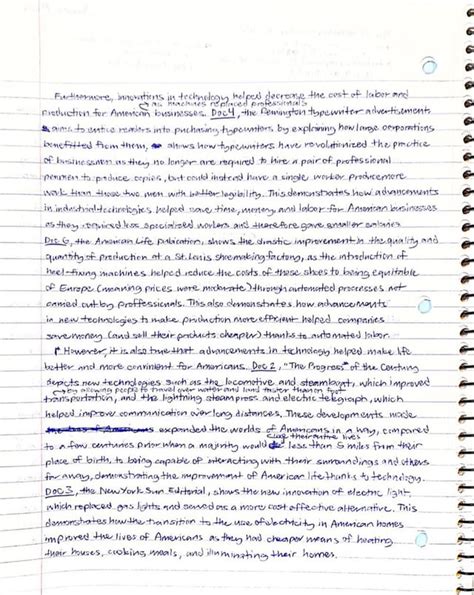 Furthermore, innovations in technology helped decrease the cost of labor and
as machines replaced professionals
production for American businesses. Doc 4, the Remington typewriter advertisement
aims to entice readers into puchasing typewriters by explaining how large corporations
benefitted from them, shows how typewriters have revolutionized the practice
of businessmen as they no longer are required to hire a pair of professional
penmen to produce copies, but could instead have a single worker produce more
work than those two men with better legibility. This demonstrates how advancements
in industrial technologies helped save time, money, and labor for American businesses
as they required less specialized workers and therefore gave smaller salaries.
Doc 6, the American Life publication, shows the drastic improvement in the quality and
quantity of production at a St. Louis shoemaking factory, as the introduction of
heel-fixing machines helped reduce the costs of those shoes to being equitable
of Europe (meaning prices were moderate) through automated processes not
carried out by proffessionals. This also demonstrates how advancements
in new technologies to make production more efficient helped companies
save money (and sell their products cheaper) thanks to automated labor.
However, it is also true that advancements in technology helped make life
better and more convinient for Americans. Doc 2, "The Progress of the Century"
depicts new technologies such as the locomotive and steamboat, which improved
by allowing people to travel over water and land faster than on foot
transportation, and the lightning steampress and electric telegraph, which
helped improve communication over long distances. These developments made
expanded the worlds of Americans in a way, compared
their entire lives
to a few centuries prior when a majority would less than 5 miles from their
place of birth, to being capable of interacting with their surroundings and others
far away, demonstrating the improvement of American life thanks to technology.
Doc 3, the New York Sun Editorial, shows the new innovation of electric light,
which replaced gas lights and served as a more cost effective alternative. This
demonstrates how the transition to the use of electricity in American homes
improved the lives of Americans as they had cheaper means of heating
their houses, cooking meals, and illuminating their homes.